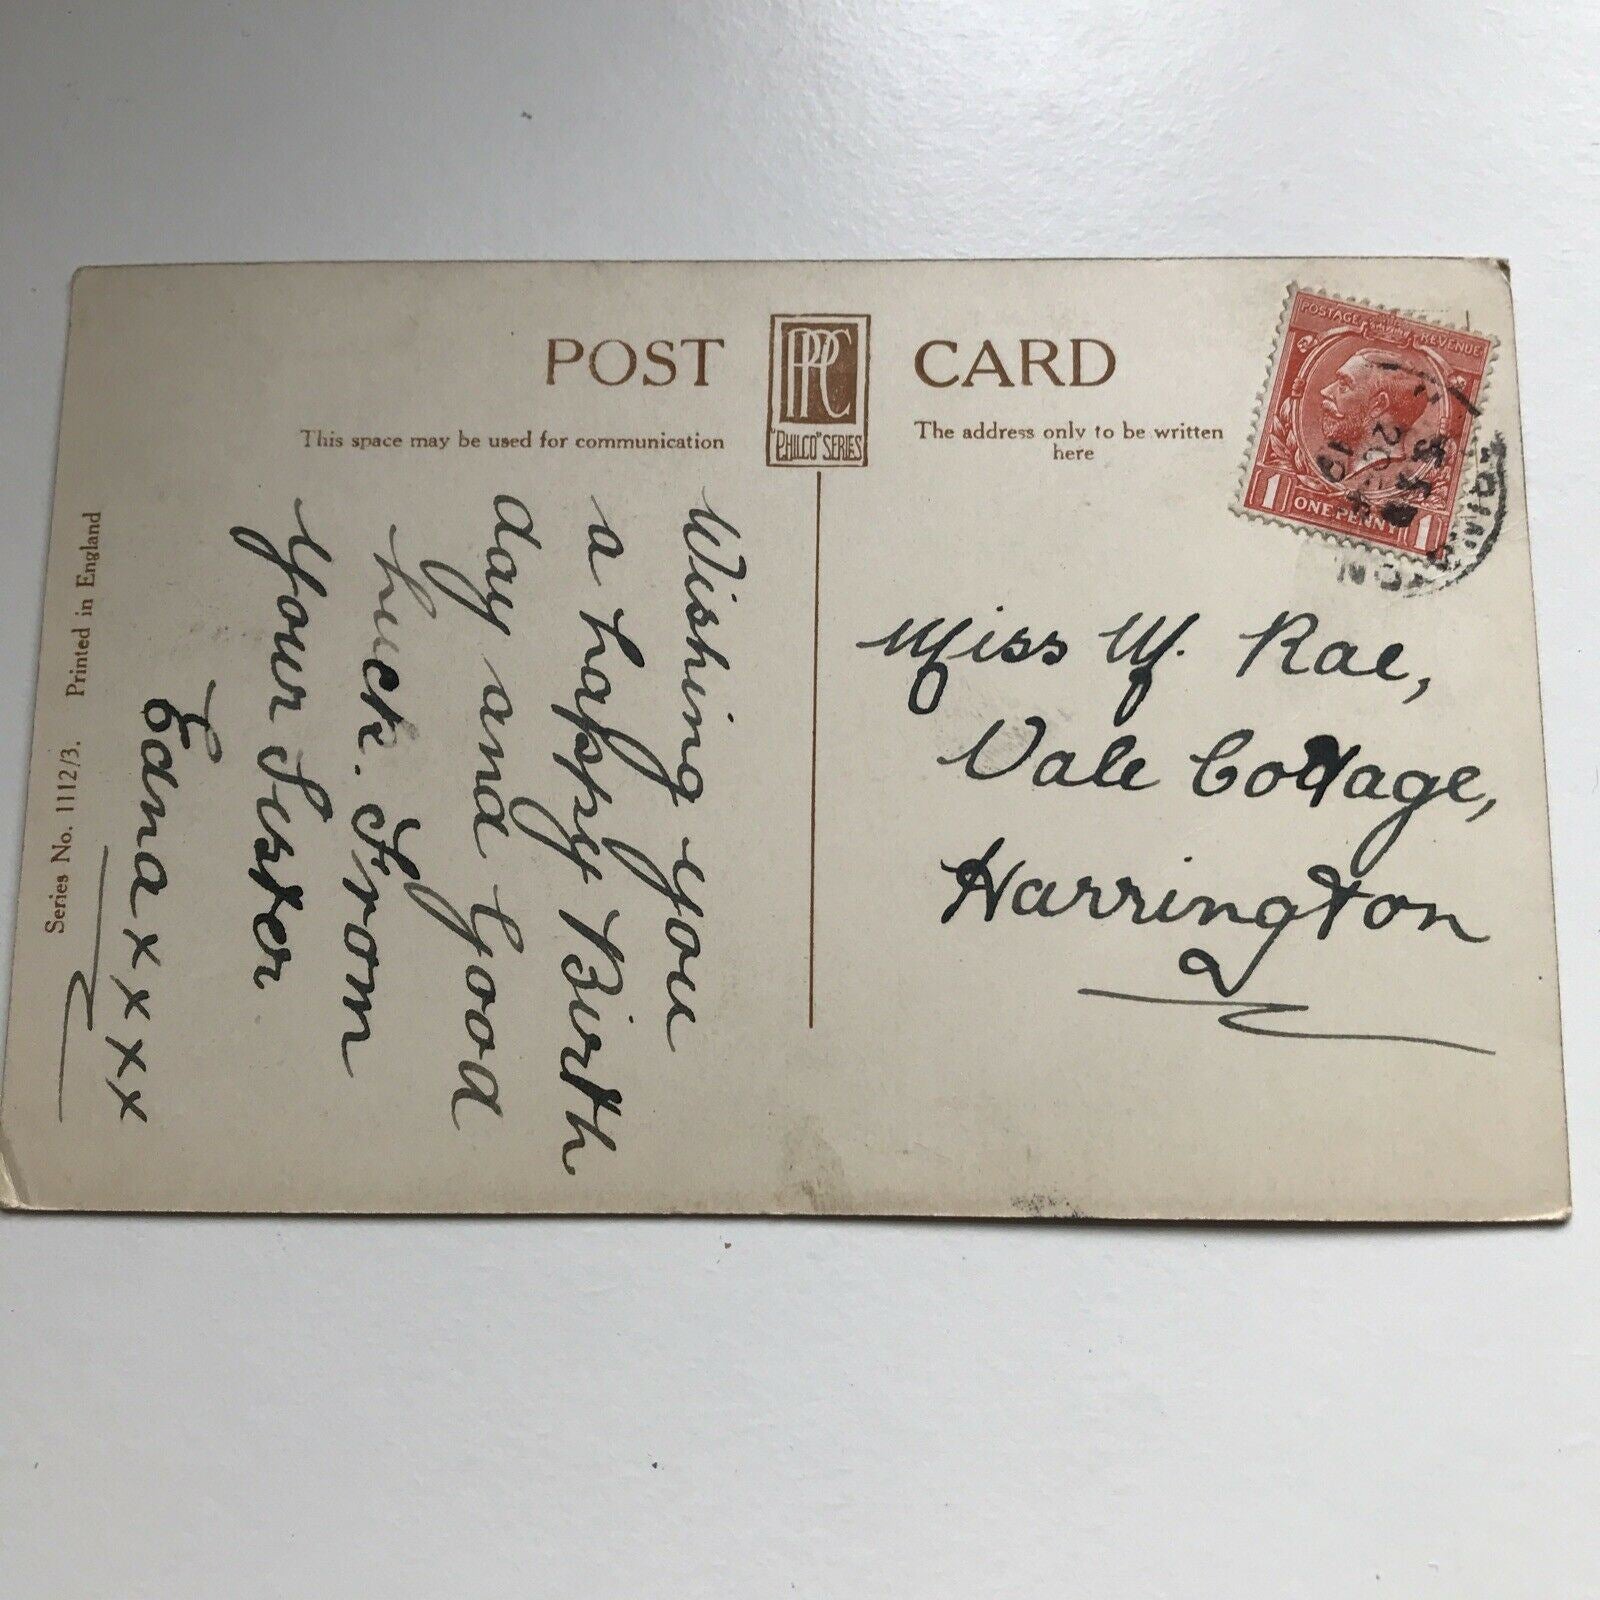 POST CARD
PPC
"PHILCO" SERIES
This space may be used for communication
The address only to be written
here
POSTAGE REVENUE
1 ONE PENNY 1
Miss M. Rae,
Vale Cottage,
Harrington
Wishing you
a happy Birth
day and Good
luck. From
Your Sister
Edna x x x x x
Series No. 1112/3. Printed in England